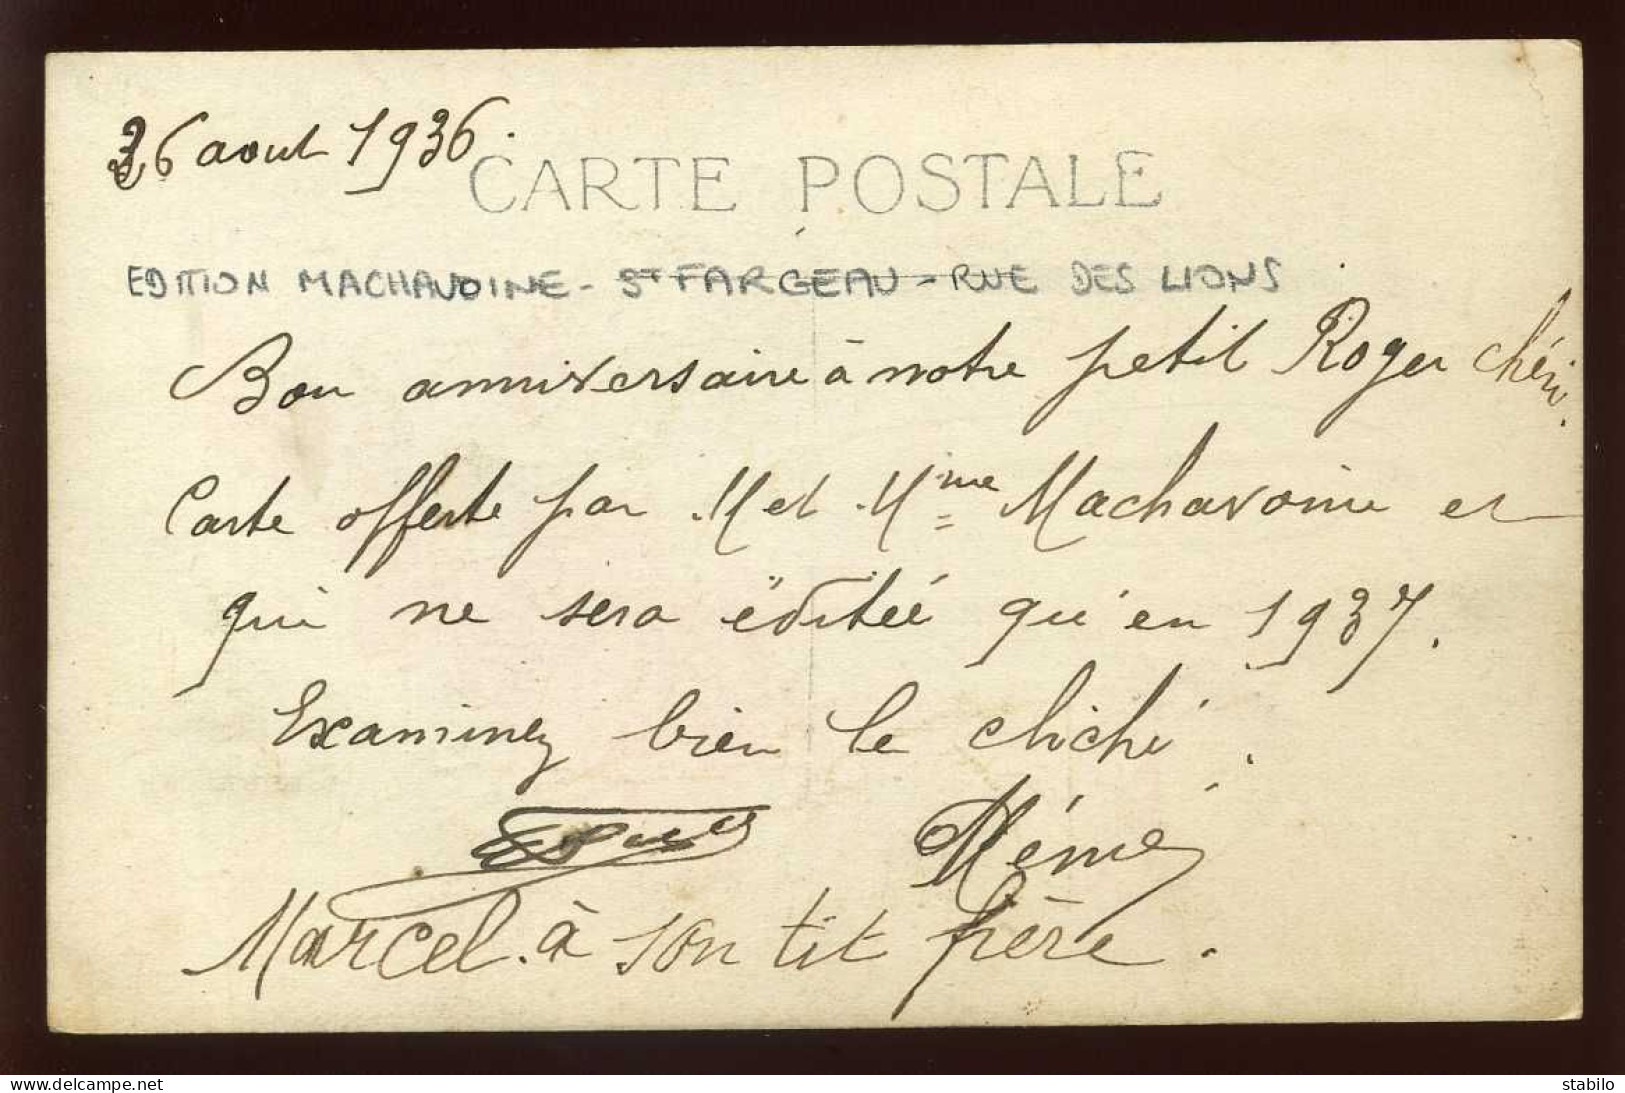 26 aout 1936.
CARTE POSTALE
EDITION MACHAVOINE - ST FARGEAU - RUE DES LIONS
Bon anniversaire à notre petit Roger chéri.
Carte offerte par M et Mme Machavoine et
qui ne sera éditée qu'en 1937.
Examinez bien le cliché.
Mémé
Marcel. à son tit frère.
www.delcampe.net
stabilo